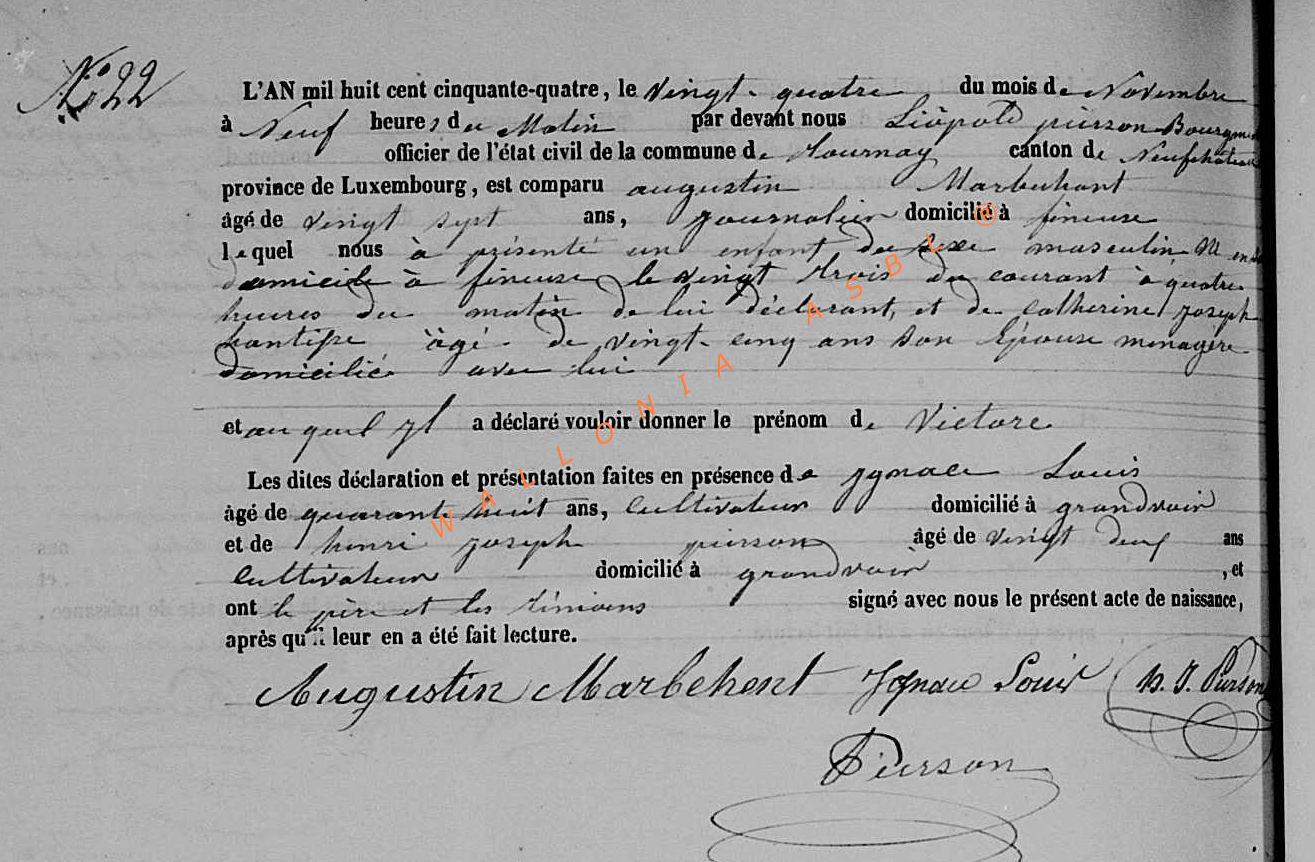 No 22
L'AN mil huit cent cinquante-quatre, le vingt-quatre du mois de Novembre
à Neuf heures du Matin par devant nous Léopold pierson Bourgme
officier de l'état civil de la commune de Tournay canton de Neufchâteau
province de Luxembourg, est comparu augustin Marbehant
âgé de vingt sept ans, journalier domicilié à fineuse
lequel nous à présenté un enfant du sexe masculin né en
domicile à fineuse le vingt trois du courant à quatre
heures du matin de lui déclarant, et de Catherine joseph
âgé de vingt-cinq ans son Épouse menagère
domicilié avec lui
et au quel yl a déclaré vouloir donner le prénom de Victore
Les dites déclaration et présentation faites en présence de jgnace Louis
âgé de quarant huit ans, Cultivateur domicilié à grandvoir
et de henri joseph pierson âgé de vingt deux ans
Cultivateur domicilié à grandvoir , et
ont le père et les témoins signé avec nous le présent acte de naissance,
après qu'il leur en a été fait lecture.
Augustin Marbehent Jgnace Louis h. J. Pierson
Pierson
WALLONIA ASBL ®